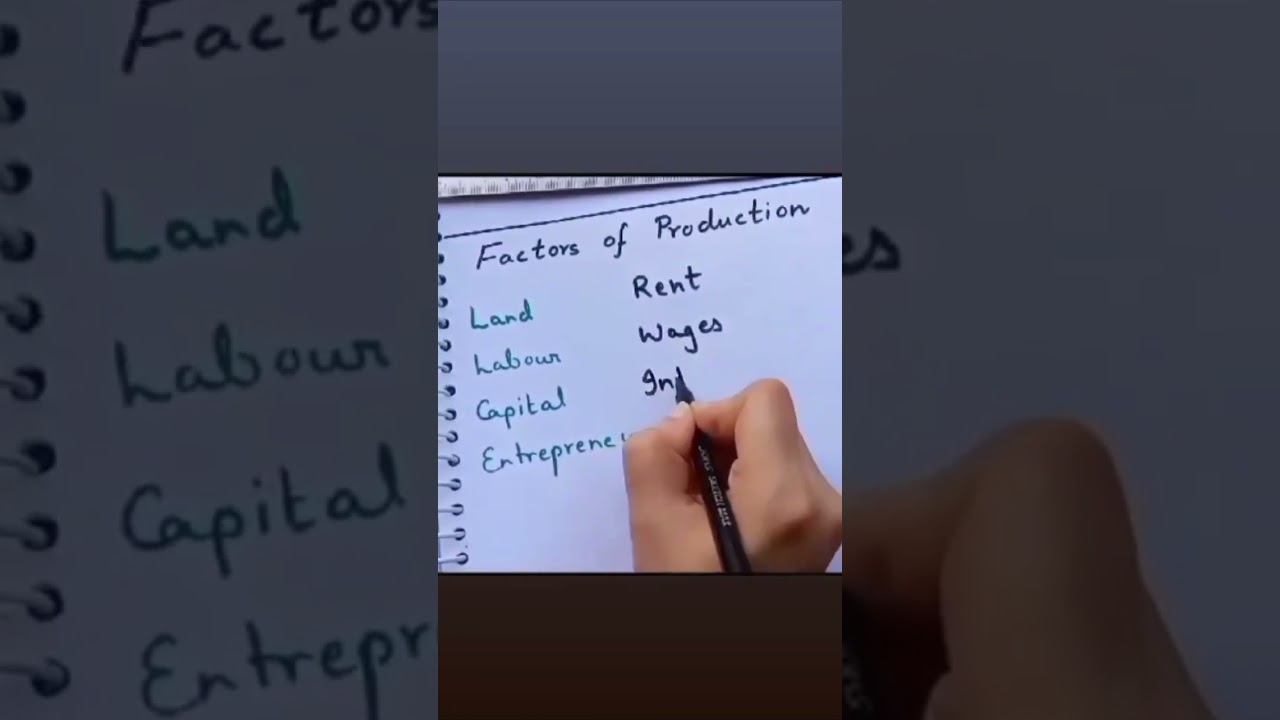 Factors of Production
Land Rent
Labour Wages
Capital Int
Entrepreneu